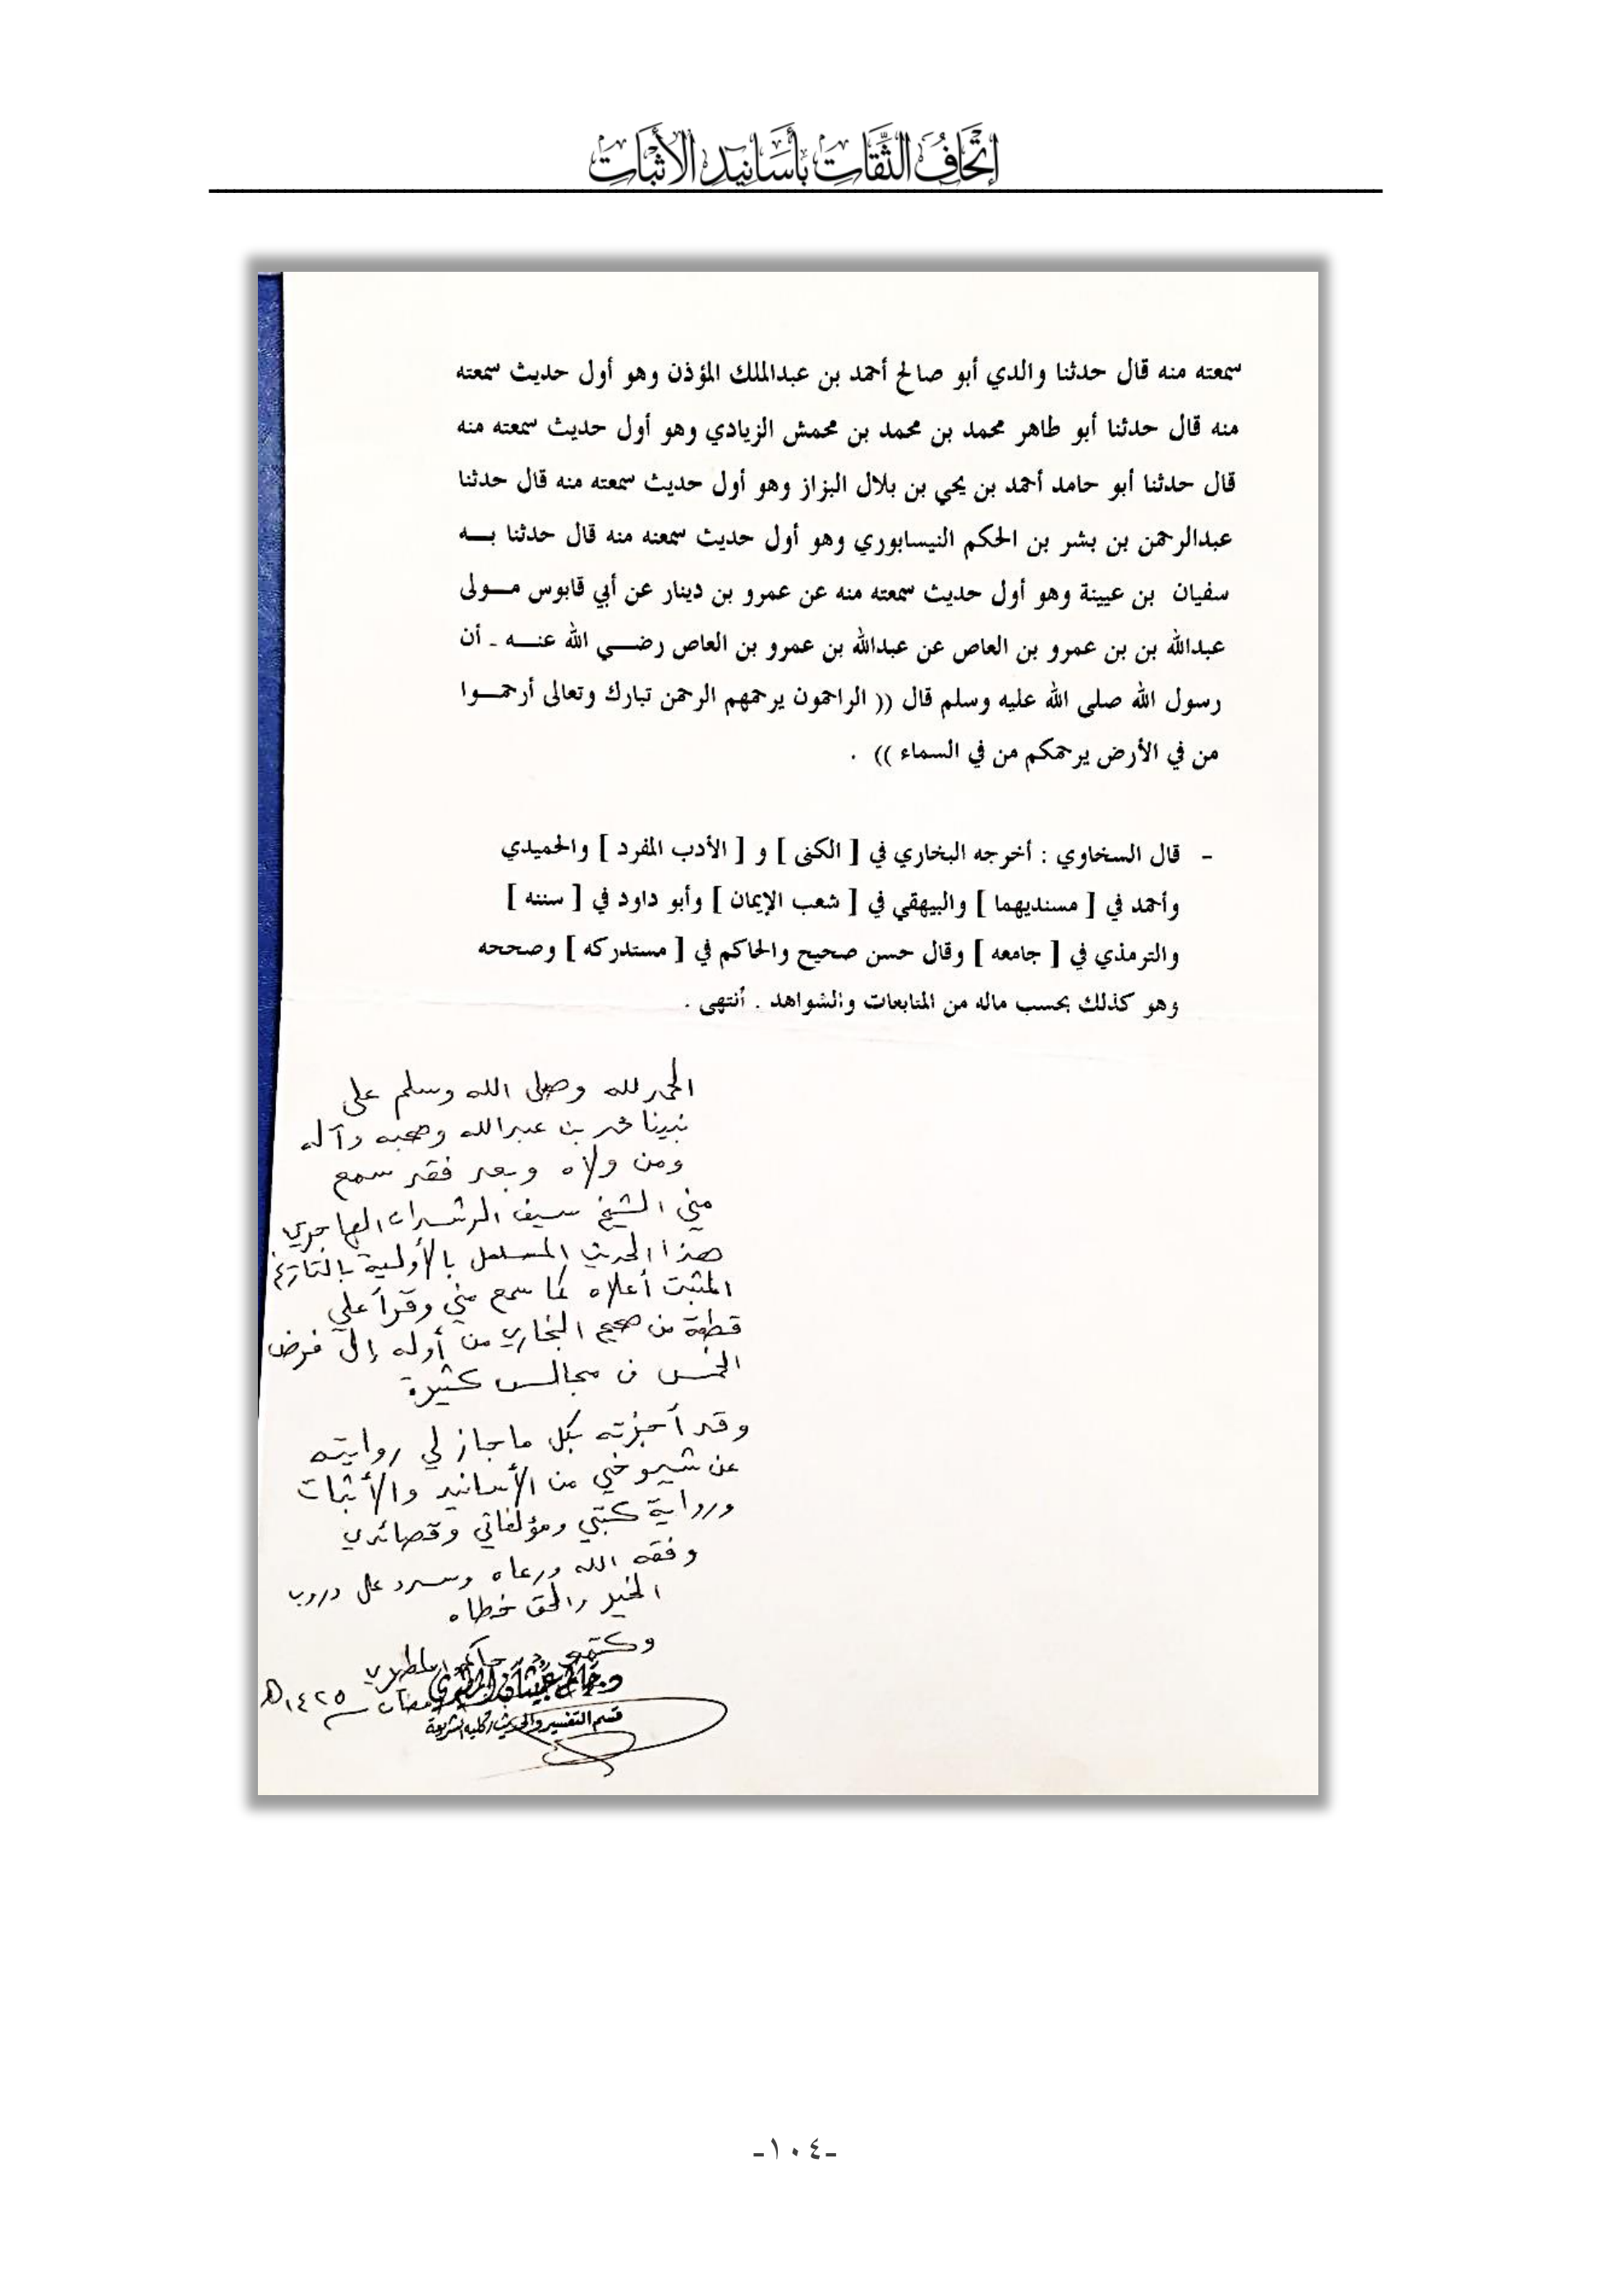 إتحاف الثقات بأسانيد الأثبات
سمعته منه قال حدثنا والدي أبو صالح أحمد بن عبدالملك المؤذن وهو أول حديث سمعته
منه قال حدثنا أبو طاهر محمد بن محمد بن محمش الزيادي وهو أول حديث سمعته منه
قال حدثنا أبو حامد أحمد بن يحي بن بلال البزاز وهو أول حديث سمعته منه قال حدثنا
عبدالرحمن بن بشر بن الحكم النيسابوري وهو أول حديث سمعته منه قال حدثنا بـــه
سفيان بن عيينة وهو أول حديث سمعته منه عن عمرو بن دينار عن أبي قابوس مــولى
عبدالله بن بن عمرو بن العاص عن عبدالله بن عمرو بن العاص رضــي الله عنــه ـ أن
رسول الله صلى الله عليه وسلم قال (( الراحمون يرحمهم الرحمن تبارك وتعالى أرحمــوا
من في الأرض يرحمكم من في السماء )) .
- قال السخاوي : أخرجه البخاري في [ الكنى ] و [ الأدب المفرد ] والحميدي
وأحمد في [ مسنديهما ] والبيهقي في [ شعب الإيمان ] وأبو داود في [ سننه ]
والترمذي في [ جامعه ] وقال حسن صحيح والحاكم في [ مستدركه ] وصححه
وهو كذلك بحسب ماله من المتابعات والشواهد . أنتهى .
الحمد لله وصلى الله وسلم على
نبينا محمد بن عبدالله وصحبه وآله
ومن ولاه وبعد فقد سمع
مني الشيخ سيف الهاجري
هذا الحديث المسلسل بالأولية بالتاريخ
المثبت أعلاه كما سمع مني وقرأ علي
قطعة من صحيح البخاري من أوله إلى فرض
الخمس في مجالس كثيرة
وقد أجزته بكل ما جاز لي روايته
عن شيوخي من الأسانيد والأثبات
ورواية كتبي ومؤلفاتي وقصائدي
وفقه الله ورعاه وسدد على دروب
الخير والحق خطاه
وكتبه د. حاكم المطيري
د. حاكم عبيسان المطيري
رمضان ١٤٢٥ هـ
قسم التفسير والحديث / كلية الشريعة
-١٠٤-